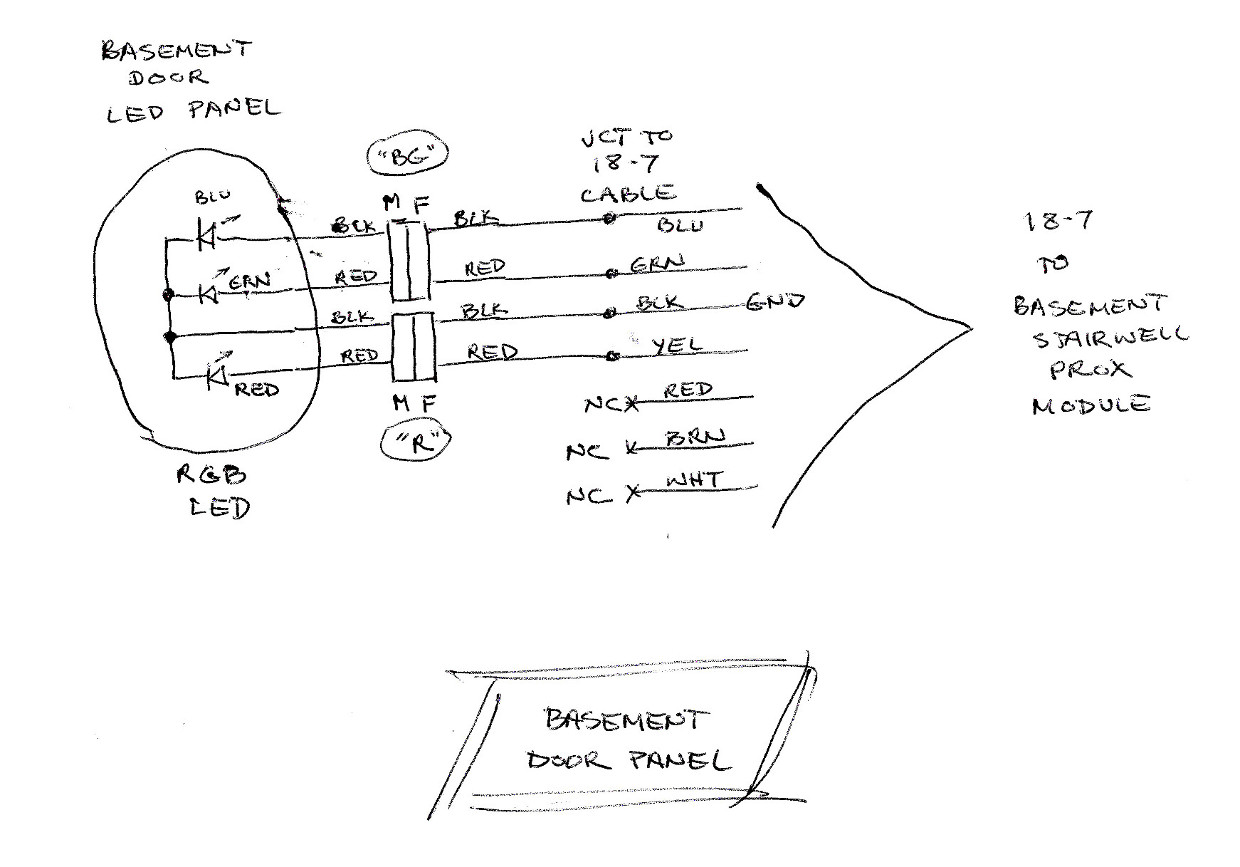 BASEMENT
DOOR
LED PANEL
"BG"
JCT TO
18-7
CABLE
M F
BLU
BLK
BLK
BLU
GRN
RED
RED
GRN
BLK
BLK
BLK
GND
RED
RED
YEL
RED
NC RED
M F
"R"
NC BRN
NC WHT
RGB
LED
18-7
TO
BASEMENT
STAIRWELL
PROX
MODULE
BASEMENT
DOOR PANEL